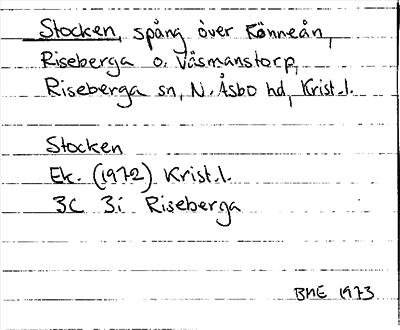 Stocken, spång över Rönneån,
Riseberga o. Väsmanstorp,
Riseberga sn, N. Åsbo hd, Krist. l.
Stocken
Ek. (1972) Krist. l.
3C 3i Riseberga
BME 1973